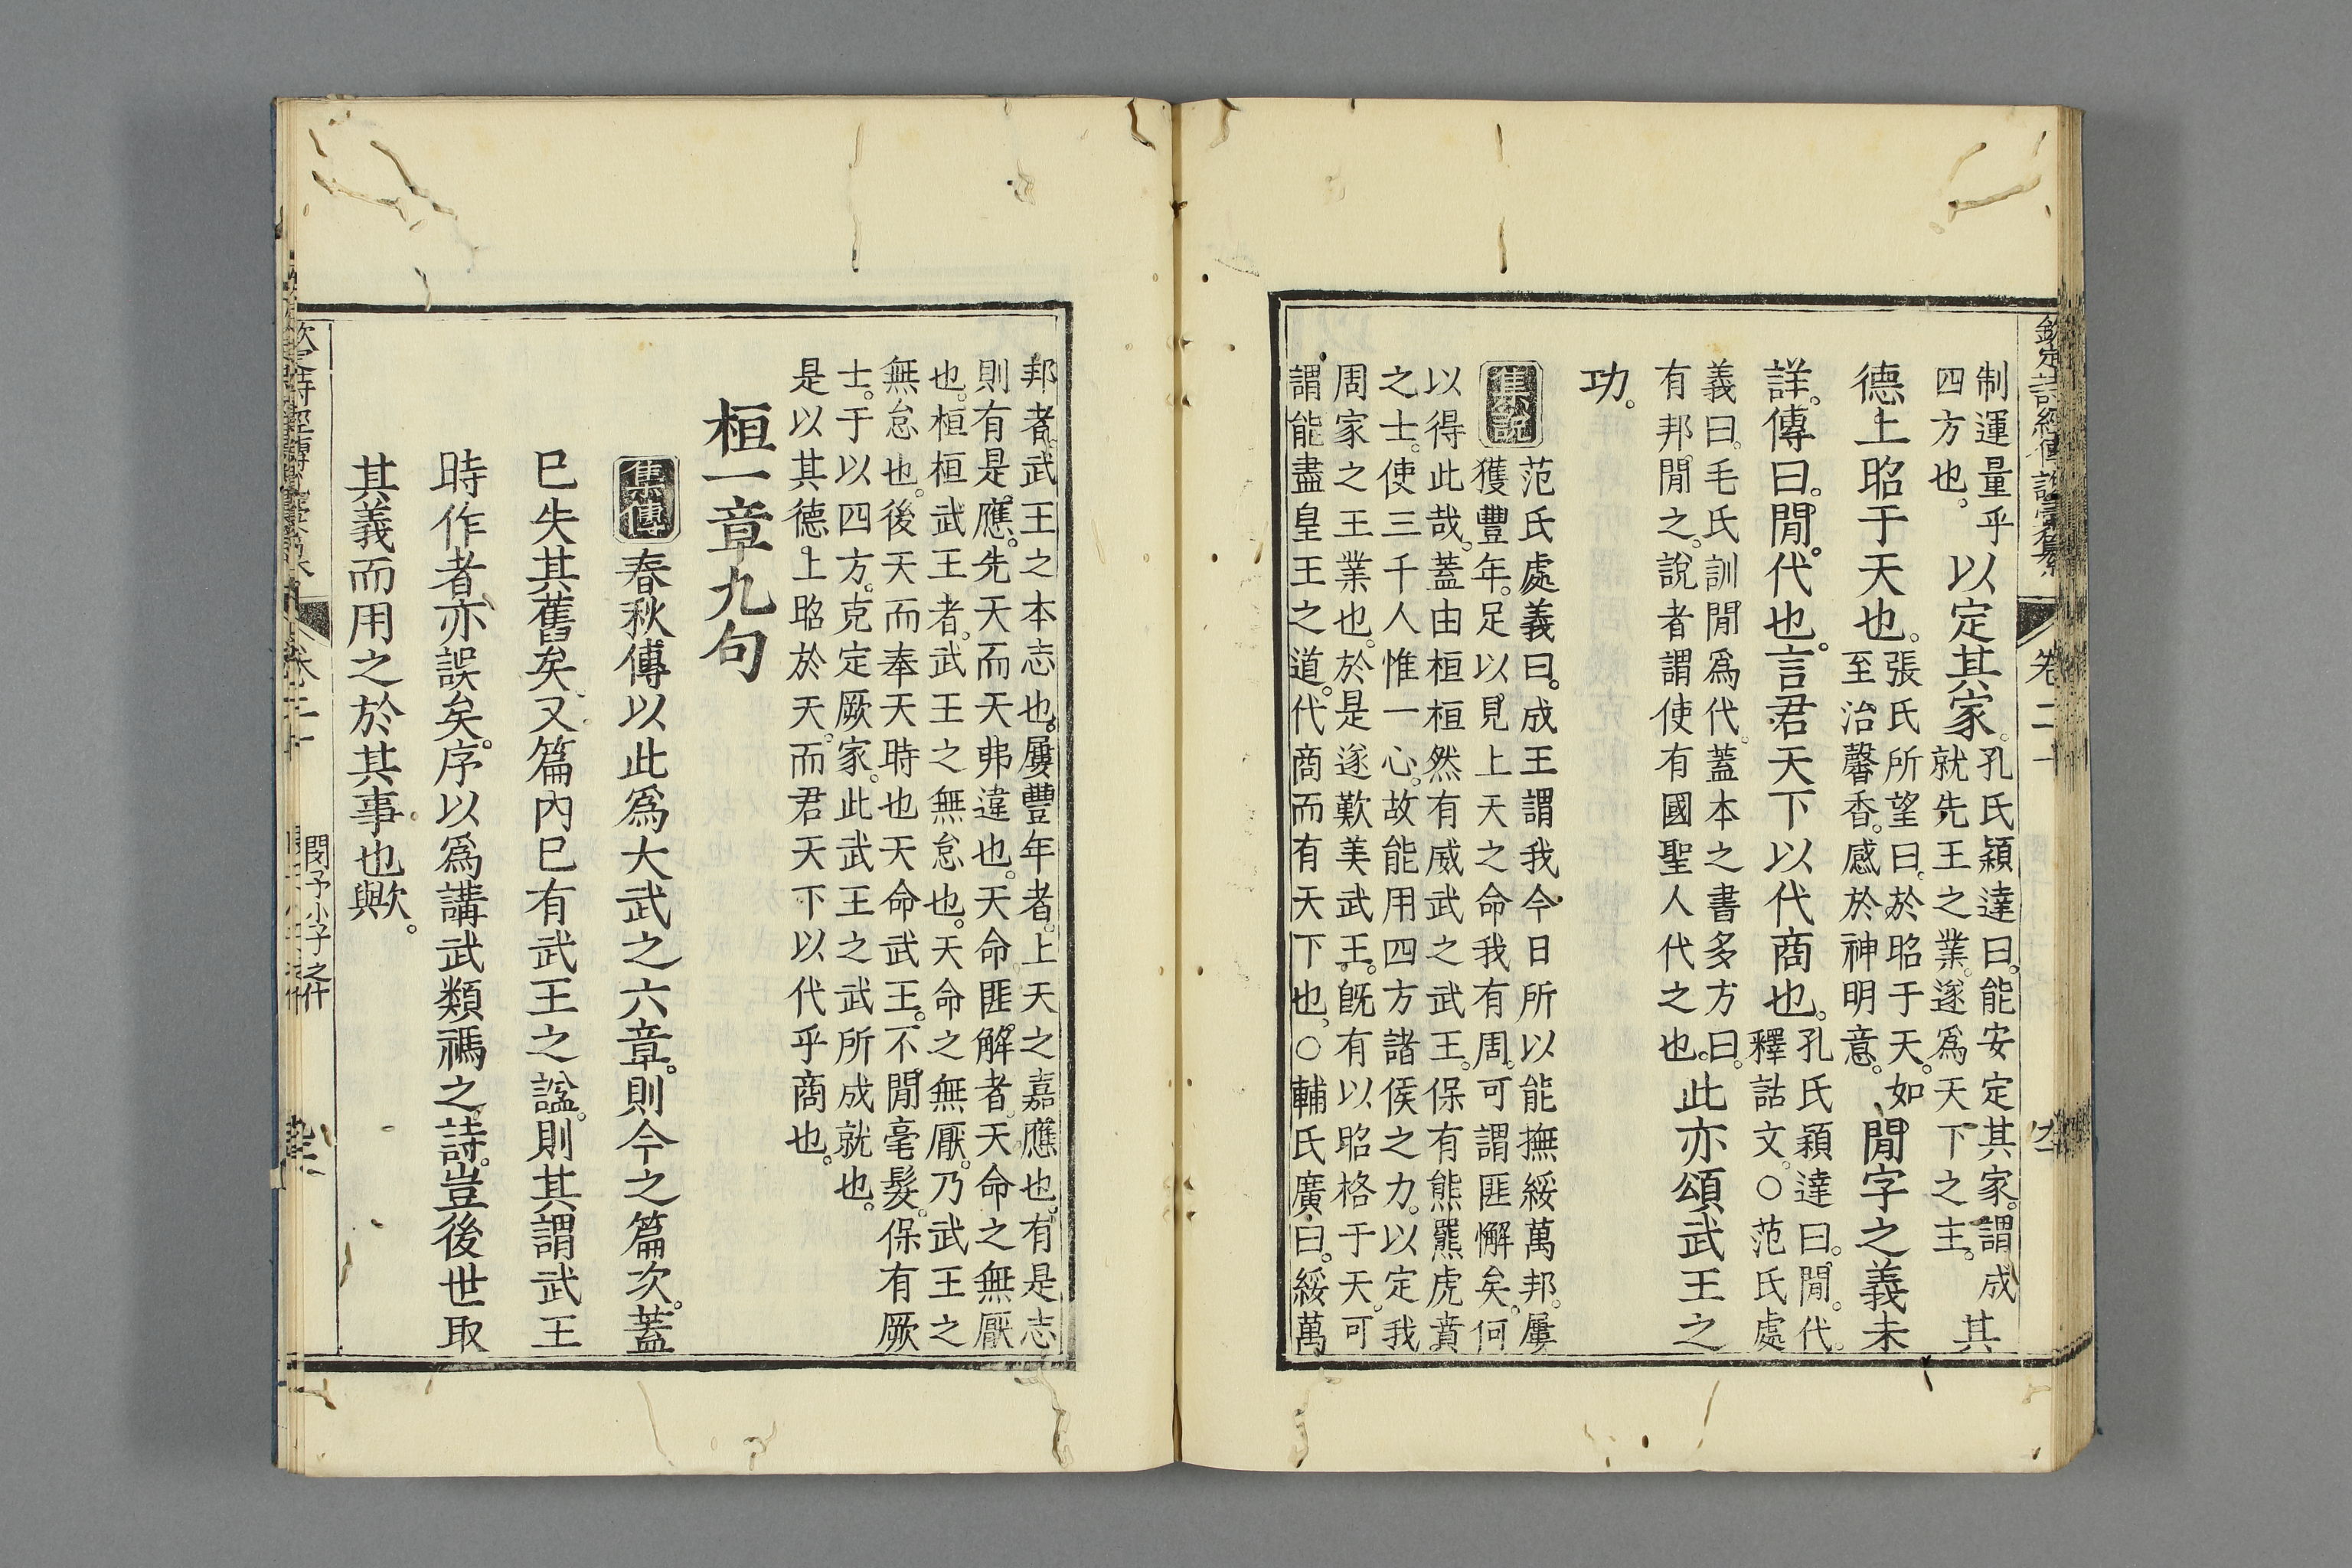 欽定詩經傳說彙纂 卷二十
制運量乎
四方也。
以定其家。
孔氏穎達曰。能安定其家。謂成
就先王之業。遂爲天下之主。
其
德上昭于天也。
張氏所望曰。於昭于天。如
至治馨香。感於神明意。
閒字之義未
詳。傳曰。閒。代也。言君天下以代商也。
孔氏穎達曰。閒。代。
釋詁文。○范氏處
義曰。毛氏訓閒爲代。蓋本之書多方曰。
有邦閒之。說者謂使有國聖人代之也。
此亦頌武王之
功。
集說
范氏處義曰。成王謂我今日所以能撫綏萬邦。屢
獲豐年。足以見上天之命我有周。可謂匪懈矣。何
以得此哉。蓋由桓桓然有威武之武王。保有熊羆虎賁
之士。使三千人惟一心。故能用四方諸侯之力。以定我
周家之王業也。於是遂歎美武王。旣有以昭格于天。可
謂能盡皇王之道。代商而有天下也。○輔氏廣曰。綏萬
邦者。武王之本志也。屢豐年者。上天之嘉應也。有是志
則有是應。先天而天弗違也。天命匪解者。天命之無厭
也。桓桓武王者。武王之無怠也。天命之無厭。乃武王之
無怠也。後天而奉天時也天命武王。不閒毫髮。保有厥
士。于以四方。克定厥家。此武王之武所成就也。
是以其德上昭於天。而君天下以代乎商也。
桓一章九句
集傳
春秋傳以此爲大武之六章。則今之篇次。蓋
已失其舊矣。又篇內已有武王之諡。則其謂武王
時作者。亦誤矣。序以爲講武類禡之詩。豈後世取
其義而用之於其事也歟。
閔予小子之什